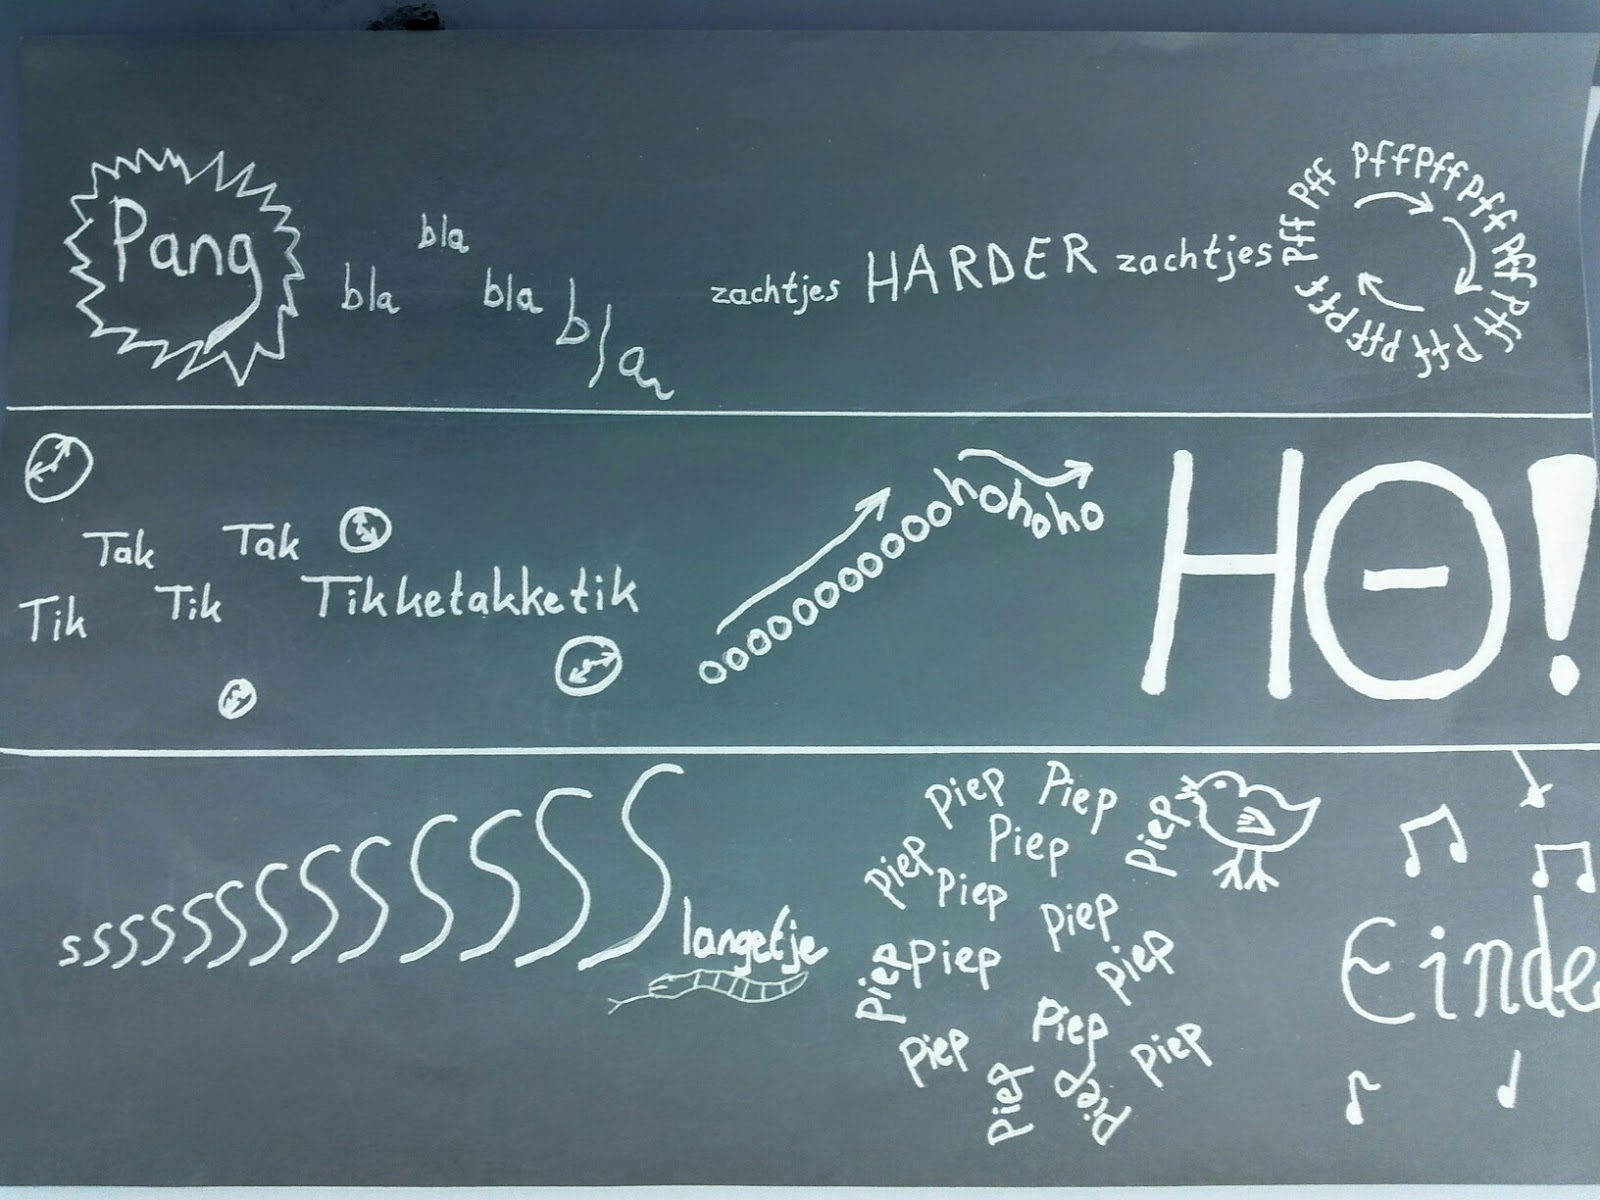 Pang bla bla bla bla zachtjes HARDER zachtjes Pff Pff Pff Pff Pff Pff Pff Pff Pff Pff Pff
Tik Tak Tik Tak Tikketakketik ooooooooooohohohoho HO!
sssssssssssSSlangetje
Piep Piep Piep Piep Piep Piep Piep Piep Piep Piep Piep Piep Piep Piep Piep
Einde